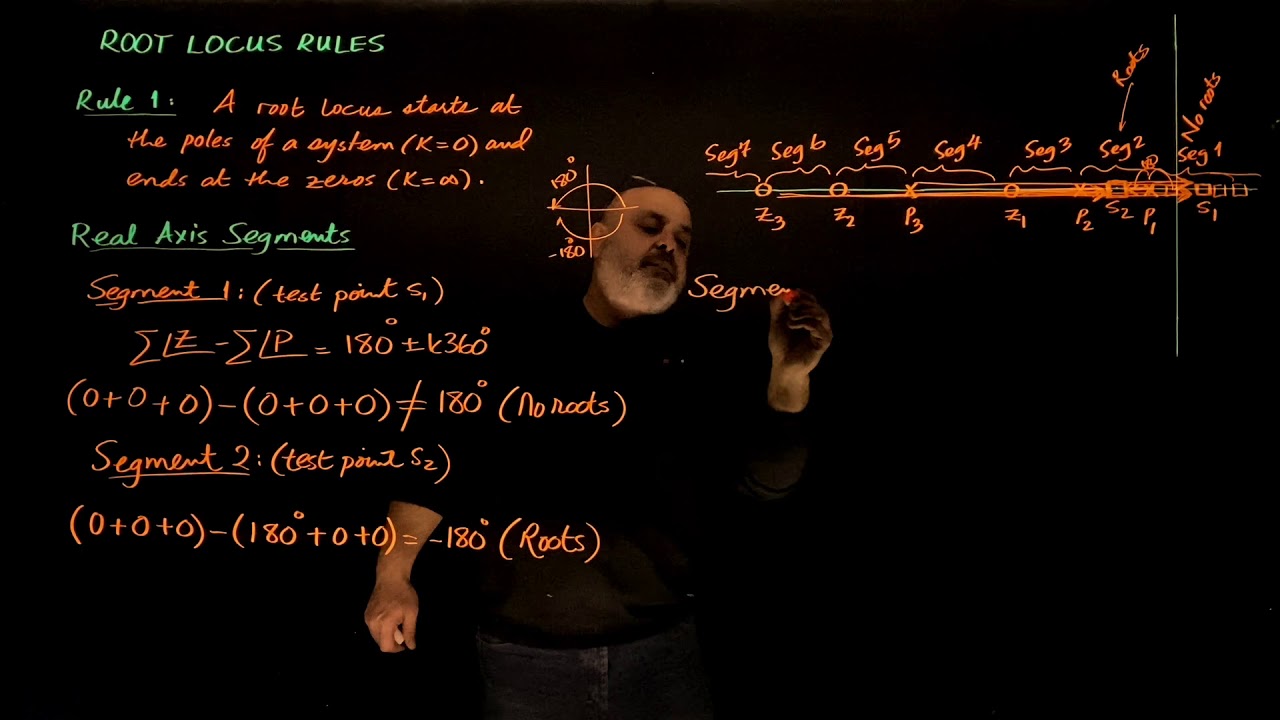 ROOT LOCUS RULES
Rule 1: A root locus starts at
the poles of a system (K=0) and
ends at the zeros (K=∞).
Real Axis Segments
Segment 1: (test point S₁)
∑∠Z - ∑∠P = 180° ± K360°
(0+0+0)-(0+0+0) ≠ 180° (No roots)
Segment 2: (test point S₂)
(0+0+0)-(180°+0+0) = -180° (Roots)
180°
-180°
Roots
No roots
Seg7 Seg6 Seg5 Seg4 Seg3 Seg2 Seg1
Z₃ Z₂ P₃ Z₁ P₂ S₂ P₁ S₁
Segmen